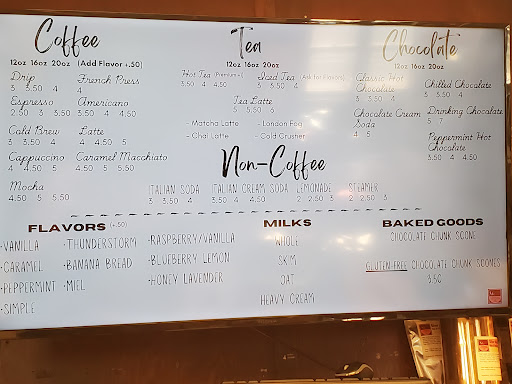 Coffee
12oz 16oz 20oz (Add Flavor +.50)
Drip
3 3.50 4
French Press
4
Espresso
2.50 3 3.50
Americano
3 3.50 4
Cold Brew
3 4 5
Latte
4 4.50 5
Cappuccino
4 4.50 5
Caramel Macchiato
4.50 5 5.50
Mocha
4.50 5 5.50
Tea
12oz 16oz 20oz
Hot Tea (Premium+)
3.50 4 4.50
Iced Tea (Ask for Flavors)
3 3.50 4
Tea Latte
5 5.50 6
- Matcha Latte
- London Fog
- Chai Latte
- Cold Crusher
Chocolate
12oz 16oz 20oz
Classic Hot
Chocolate
3 3.50 4.50
Chilled Chocolate
3 3.50 4
Chocolate Cream
Soda
4 5
Drinking Chocolate
5 7
Peppermint Hot
Chocolate
3.50 4 4.50
Non-Coffee
ITALIAN SODA
3 3.50 4
ITALIAN CREAM SODA
3.50 4 4.50
LEMONADE
2 2.50 3
STEAMER
2 2.50 3
FLAVORS (+.50)
•VANILLA
•CARAMEL
•PEPPERMINT
•SIMPLE
•THUNDERSTORM
•BANANA BREAD
•MIEL
•RASPBERRY/VANILLA
•BLUEBERRY LEMON
•HONEY LAVENDER
MILKS
WHOLE
SKIM
OAT
HEAVY CREAM
BAKED GOODS
CHOCOLATE CHUNK SCONE
GLUTEN-FREE CHOCOLATE CHUNK SCONES
3.50